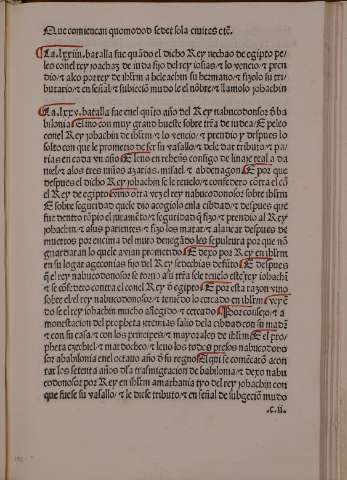 Que comiencan quomodod sedet sola ciuites etc̃.
La .lxxiiii. batalla fue quãdo el dicho Rey nechao de egipto pe/
leo conel rey joachaz de iuda fijo del rey iosias/ ⁊ lo vencio/ ⁊ pren
dio/ ⁊ alço por rey de ihrlm a heleachin su hermano/ ⁊ fizolo su tri
butario/ ⁊ en señal/ ⁊ subiecciõ mudo le el nõbre/ ⁊ llamolo johachin
La .lxxv. batalla fue enel quĩto año del Rey nabucodonosor õ ba
bilonia El vino con muy grand hueste sobre trr̃a de iudea E peleo
conel Rey johachin de ihrlm/ ⁊ lo vencio/ ⁊ prendio y despues lo
solto con que le prometio de ser su vasallo/ ⁊ dele dar tributo/ ⁊ pa/
rias en cada vn año E leuo en rehenes consigo de linaje real a da
niel/ ⁊ alos tres niños azarias. misael/ ⁊ abdenagon E por que
despues el dicho Rey johachin se le reuelo/ ⁊ confedero cõtra el cõ
el Rey de egipto cõmo otra vez el rey nabucodonosor sobre ihrlm
E sobre seguridad quele dio acogiolo enla cibdad/ ⁊ despues que
fue dentro rõpio el juramẽto/ ⁊ seguridad q̃ fizo/ ⁊ prendio al Rey
johachin/ ⁊ asus parientes/ ⁊ fizo los matar/ ⁊ alançar despues de
muertos por encima del muro denegãdo les sepultura por que nõ
guardaran lo quele avian prometido E dexo por Rey en ihrlm
en su logar a geconias fijo del Rey sedechias defũto E despues
q̃ el rey nabucodonosor se torno a su trr̃a sele reuelo este rey johachĩ
⁊ se cõfedero contra el conel Rey õ egipto E por esta razon vino
sobre el el rey nabucodonosor/ ⁊ teniẽdo lo cercado en ihrlm/ veyẽ
do se el rey johachin mucho aflegido/ ⁊ cercado Por consejo/ ⁊ a
monestacion del propheta jeremias salio dela cibdad con su madr̃
⁊ con su casa/ ⁊ con los principes/ ⁊ mayorales de ihrlm E el pro/
pheta ezechiel/ ⁊ mardocheo/ ⁊ leuo los todos presos nabucodono
sor a babilonia enel octauo año õ su regno E aqui se comẽcarõ acon
tar los setenta años dla trasmigracion de babilonia/ ⁊ dexo nabu
codonosor por Rey en ihrlm a mathania tyo del rey johachin con
que fuese su vasallo/ ⁊ le diese tributo/ ⁊ en señal de subgeciõ mudo
.c.ii.